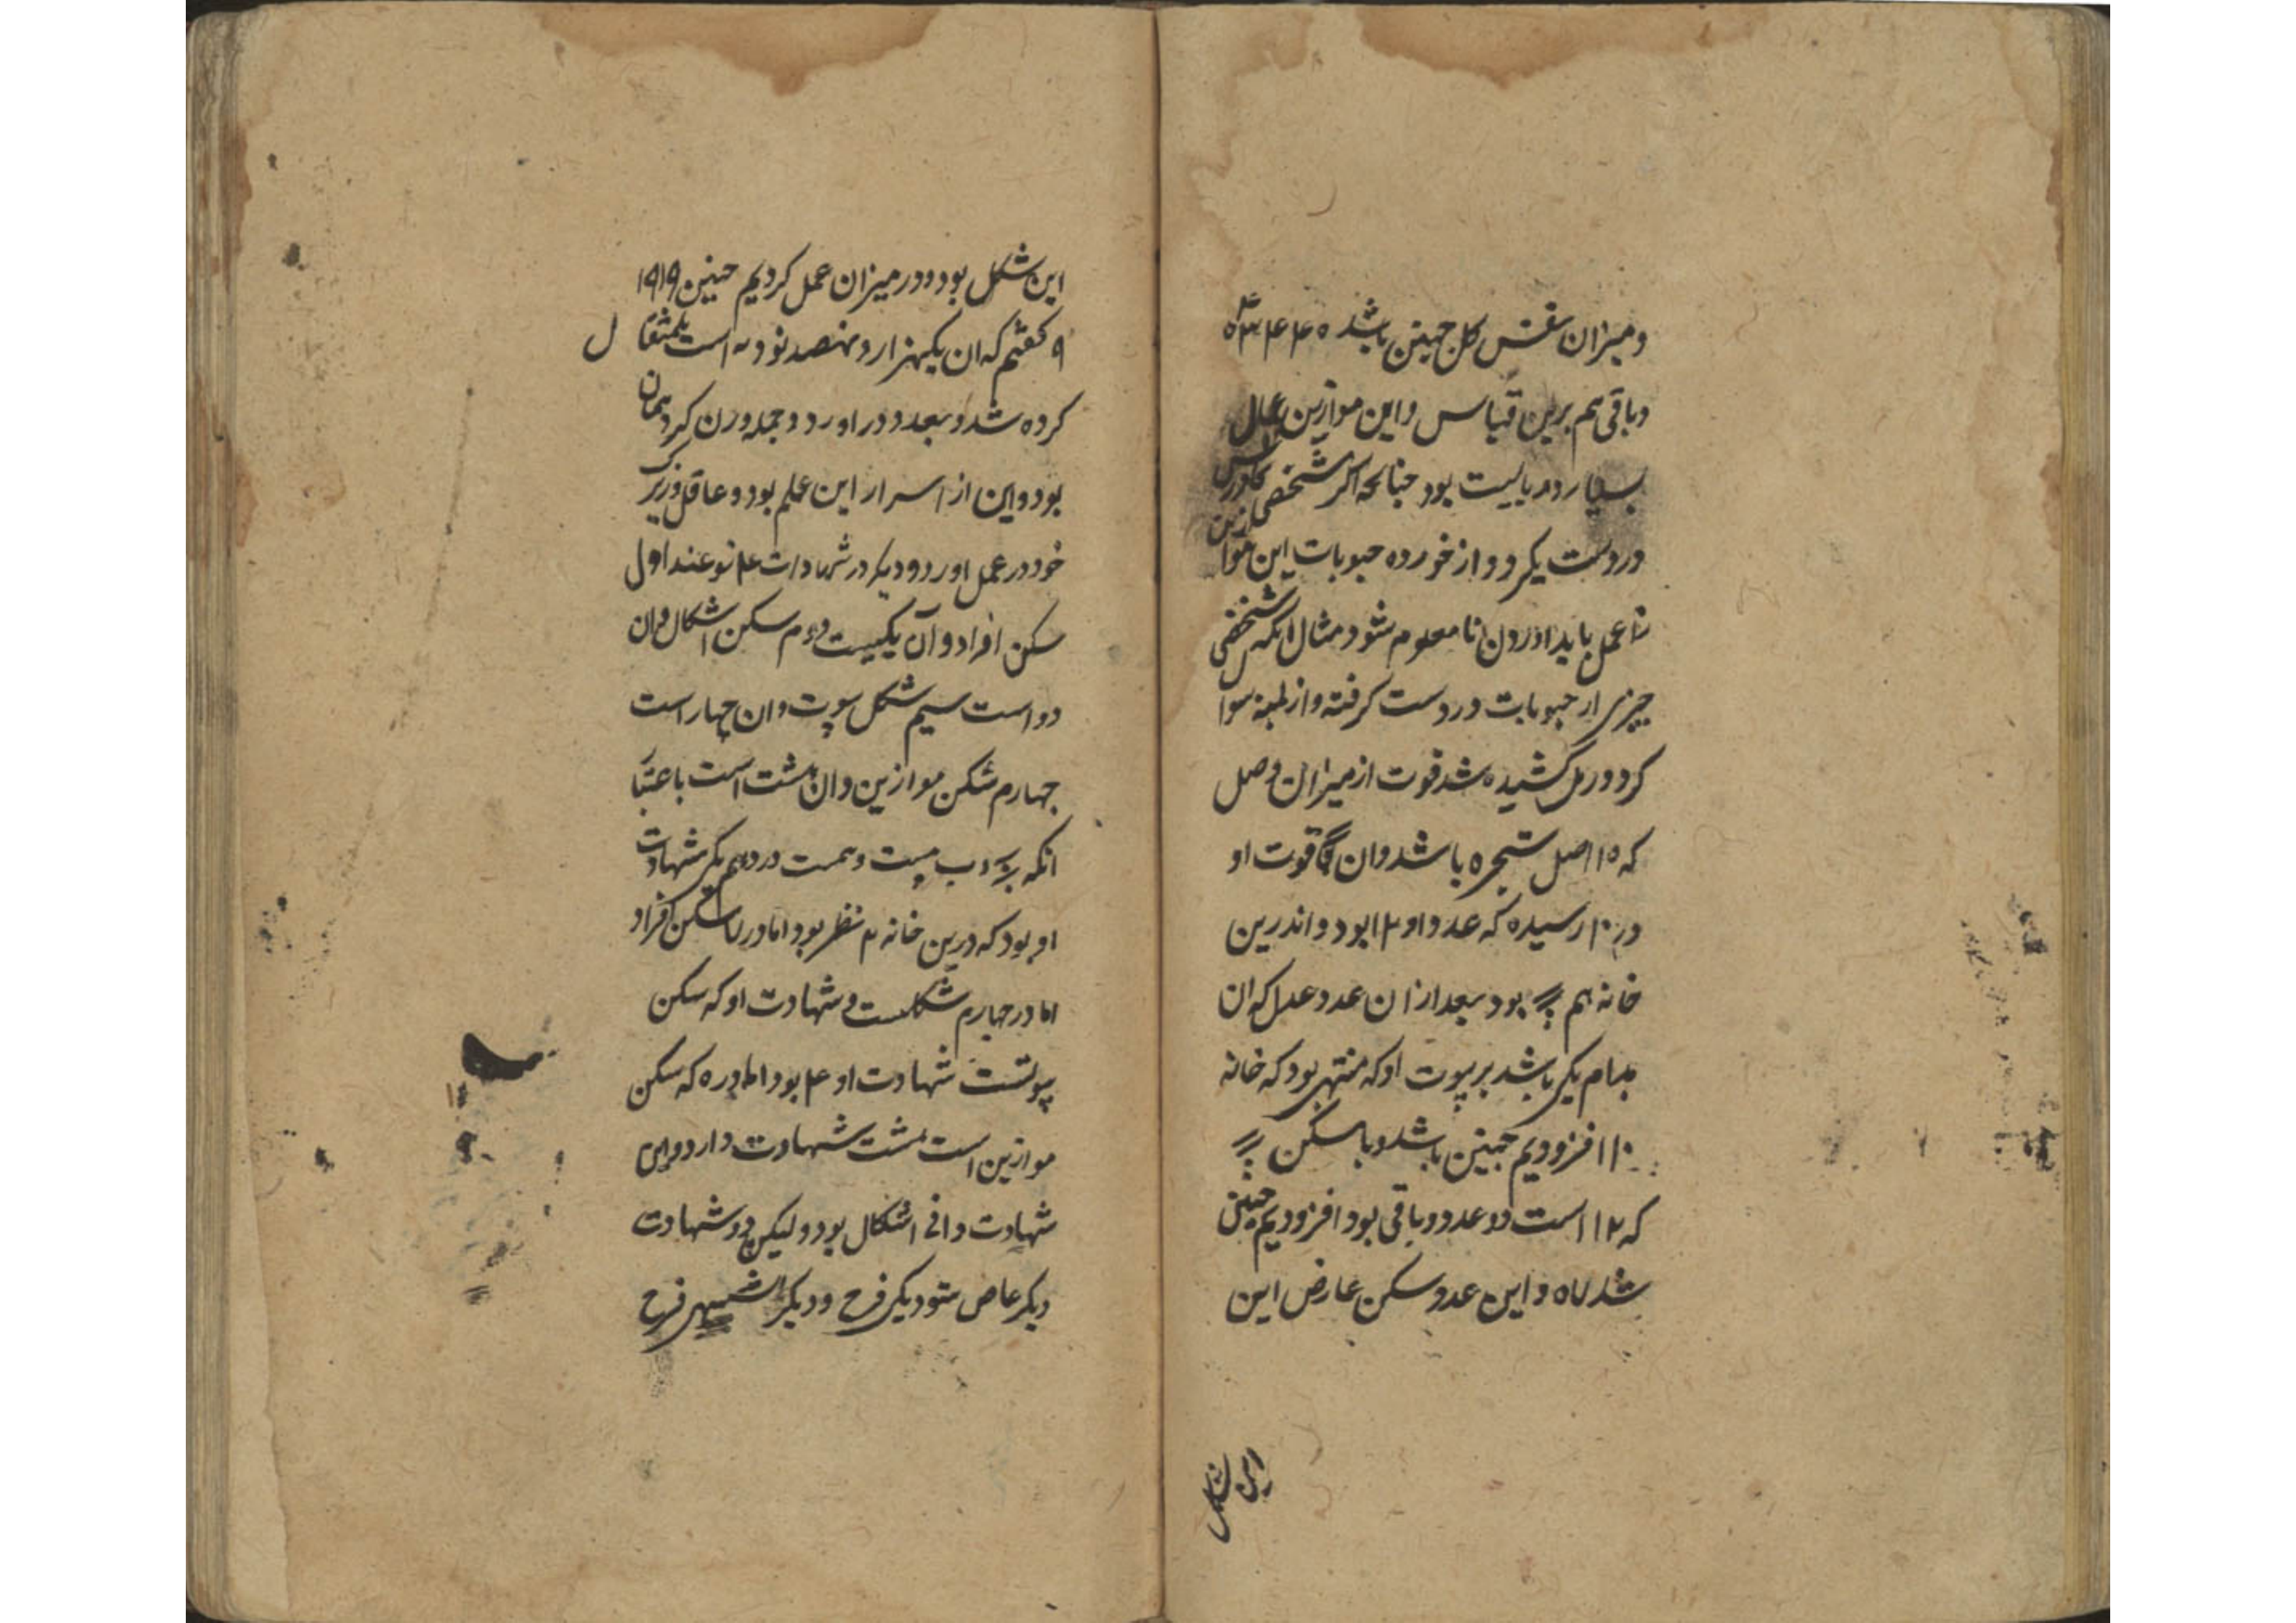 و میزان نفس کل چنین باشد
و باقی هم برین قیاس و این موازین
بسیار در بالیست بود چنانچه اکر شخصی
در دست یکرد و از خورده حبوبات این موازین
عمل باید اوردن تا معلوم شود مثال انکه شخصی
چیزی از حبوبات در دست کرفته و از سوا
کرد و رمل کشیده شد قوت از میزان وصل
که ۱۵ اصل شجره باشد و ان قوت او
در ۱۰ رسیده که عدد او ۱۲ بود و اندرین
خانه هم بود بعد ازان عدد عدل که ان
مدام یکی باشد بر بیوت او که منتهی بود که خانه
۱۰ افزودیم چنین باشد و با سکن
که ۱۲ است دو عدد و باقی بود افزودیم چنین
شد و این عدد سکن عارض این
این شکل
این شکل بود و در میزان عمل کردیم چنین ۱۹۱۹
۹ کفتیم که ان یکهزار و نهصد نود است
کرده شد و بعد در اورد و جمله وزن کرد همان
بود و این از اسرار این علم بود و عاقل و زیرک
خود در عمل اورد و دیکر در شهادات ۴ نوعند اول
سکن افراد و آن یکیست دوم سکن اشکال و ان
دو است سیم شکل بیوت و ان چهار است
چهارم سکن موازین و ان هشت است باعتبار
انکه بیست در دهم یکی شهادت
او بود که درین خانه ۲ نظر بود اما در سکن افراد
اما در چهارم شکلست و شهادت او که سکن
بیوتست شهادت او ۴ بود اما در ۵ که سکن
موازین است هشت شهادت دارد و این
شهادت دانی اشکال بود و لیکن دو شهادت
دیکر عاص شود یکی فرح و دیکر فرح